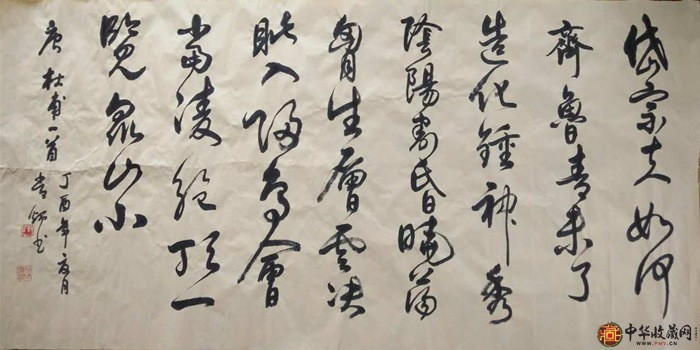 岱宗夫如何
齊魯青未了
造化鍾神秀
陰陽割昏曉蕩
胷生層雲决
眦入歸鳥會
當凌絕頂一
覽衆山小
唐杜甫一首
丁酉年夏月
书
中华收藏网
WWW.PMV.CN